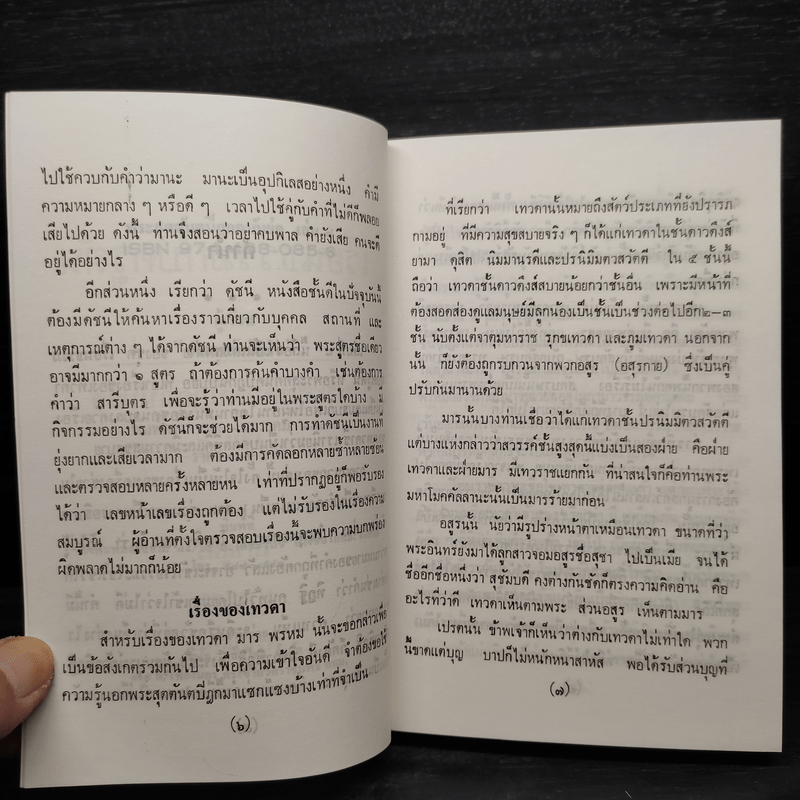 ไปใช้ควบกับคำว่ามานะ มานะเป็นอุปกิเลสอย่างหนึ่ง คำมี
ความหมายกลาง ๆ หรือดี ๆ เวลาไปใช้คู่กับคำที่ไม่ดีก็พลอย
เสียไปด้วย ดังนี้ ท่านจึงสอนว่าอย่าคบพาล คำยังเสีย คนจะดี
อยู่ได้อย่างไร
อีกส่วนหนึ่ง เรียกว่า ดัชนี หนังสือชั้นดีในปัจจุบันนี้
ต้องมีดัชนีให้ค้นหาเรื่องราวเกี่ยวกับบุคคล สถานที่ และ
เหตุการณ์ต่าง ๆ ได้จากดัชนี ท่านจะเห็นว่า พระสูตรชื่อเดียว
อาจมีมากกว่า ๑ สูตร ถ้าต้องการค้นคำบางคำ เช่นต้องการ
คำว่า สารีบุตร เพื่อจะรู้ว่าท่านมีอยู่ในพระสูตรใดบ้าง มี
กิจกรรมอย่างไร ดัชนีก็จะช่วยได้มาก การทำดัชนีเป็นงานที่
ยุ่งยากและเสียเวลามาก ต้องมีการคัดลอกหลายซ้ำหลายซ้อน
และตรวจสอบหลายครั้งหลายหน เท่าที่ปรากฏอยู่ก็พอรับรอง
ได้ว่า เลขหน้าเลขเรื่องถูกต้อง แต่ไม่รับรองในเรื่องความ
สมบูรณ์ ผู้อ่านที่ตั้งใจตรวจสอบเรื่องนี้จะพบความบกพร่อง
ผิดพลาดไม่มากก็น้อย
เรื่องของเทวดา
สำหรับเรื่องของเทวดา มาร พรหม นั้นจะขอกล่าวเพื่อ
เป็นข้อสังเกตรวมกันไป เพื่อความเข้าใจอันดี จำต้องขอใช้
ความรู้นอกพระสุตตันตปิฎกมาแซกแซงบ้างเท่าที่จำเป็น
(๖)
ที่เรียกว่า เทวดานั้นหมายถึงสัตว์ประเภทที่ยังปรารภ
กามอยู่ ที่มีความสุขสบายจริง ๆ ก็ได้แก่เทวดาในชั้นดาวดึงส์
ยามา ดุสิต นิมมานรดีและปรนิมิมตวสวัตตี ใน ๕ ชั้นนี้
ถือว่า เทวดาชั้นดาวดึงส์สบายน้อยกว่าชั้นอื่น เพราะมีหน้าที่
ต้องสอดส่องดูแลมนุษย์มีลูกน้องเป็นชั้นเป็นช่วงต่อไปอีก๒-๓
ชั้น นับตั้งแต่จาตุมหาราช รุกขเทวดา และภูมเทวดา นอกจาก
นั้น ก็ยังต้องถูกรบกวนจากพวกอสูร (อสุรกาย) ซึ่งเป็นคู่
ปรับกันมานานด้วย
มารนั้นบางท่านเชื่อว่าได้แก่เทวดาชั้นปรนิมมิตวสวัตตี
แต่บางแห่งกล่าวว่าสวรรค์ชั้นสูงสุดนี้แบ่งเป็นสองฝ่าย คือฝ่าย
เทวดาและฝ่ายมาร มีเทวราชแยกกัน ที่น่าสนใจก็คือท่านพระ
มหาโมคคัลลานะนั้นเป็นมารร้ายมาก่อน
อสูรนั้น นัยว่ามีรูปร่างหน้าตาเหมือนเทวดา ขนาดที่ว่า
พระอินทร์ยังมาได้ลูกสาวจอมอสูรชื่อสุชา ไปเป็นเมีย จนได้
ชื่ออีกชื่อหนึ่งว่า สุชัมบดี คงต่างกันชัดก็ตรงความคิดอ่าน คือ
อะไรที่ว่าดี เทวดาเห็นตามพระ ส่วนอสูร เห็นตามมาร
เปรตนั้น ข้าพเจ้าก็เห็นว่าต่างกับเทวดาไม่เท่าใด พวก
นี้ขาดแต่บุญ บาปก็ไม่หนักหนาสาหัส พอได้รับส่วนบุญที่
(๗)